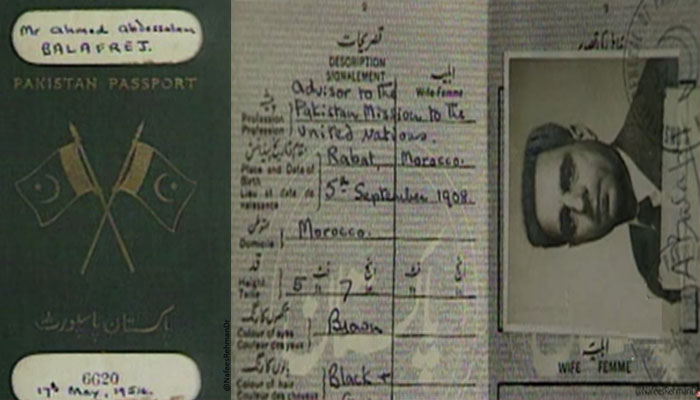 Mr Ahmed Abdessalam
BALAFREJ.
PAKISTAN PASSPORT
پاکستان پاسپورٹ
6620
17th May, 1952.
DESCRIPTION
SIGNALEMENT
Wife Femme
Advisor to the
Profession
Profession
Pakistan Mission to the
United Nations.
Place and Date of
Birth
Lieu et date de
naissance
Rabat, Morocco.
5th September 1908.
Domicile
Morocco.
قد
Height
Taille
فٹ
انچ
فٹ
انچ
5
7
Colour of eyes
Couleur des yeux
Brown
Colour of hair
Couleur des cheveux
Black +
WIFE FEMME